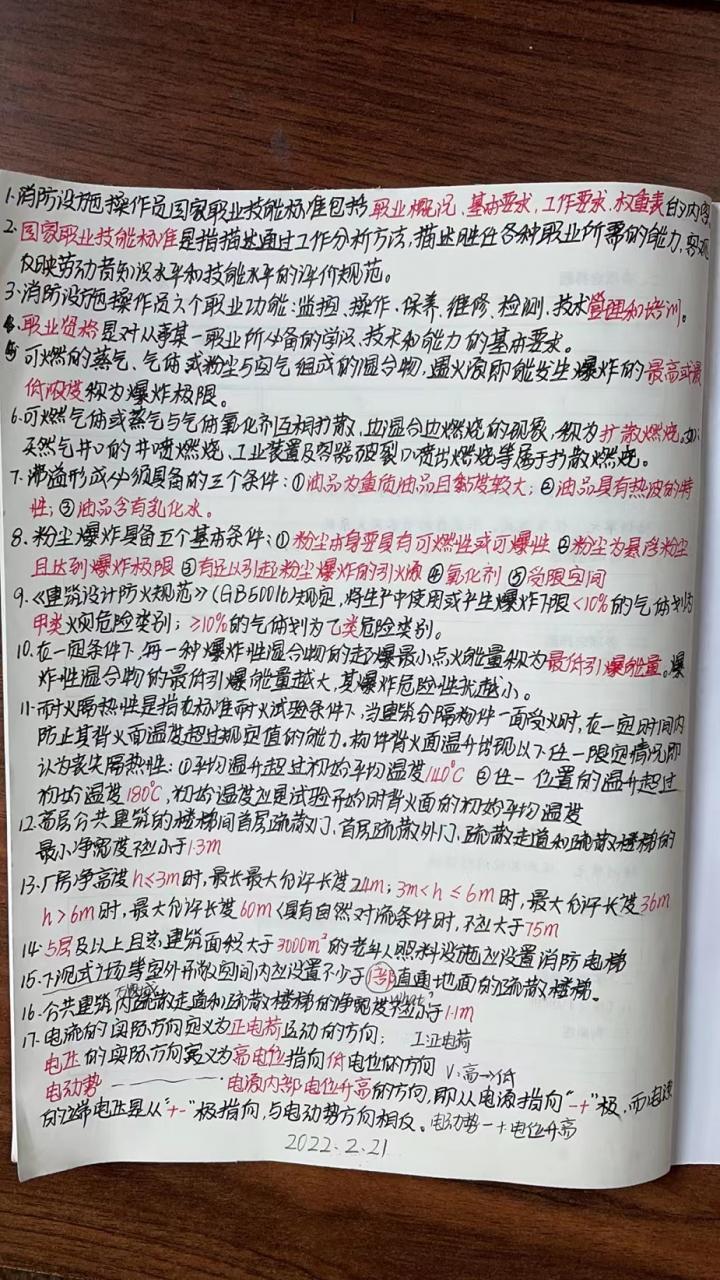 1.消防设施操作员国家职业技能标准包括职业概况、基本要求、工作要求、权重表的内容
2.国家职业技能标准是指描述通过工作分析方法,描述胜任各种职业所需的能力,客观
反映劳动者知识水平和技能水平的评价规范。
3.消防设施操作员六个职业功能:监控、操作、保养、维修、检测、技术管理和培训。
4.职业资格是对从事某一职业所必备的学识、技术和能力的基本要求。
5.可燃的蒸气、气体或粉尘与空气组成的混合物,遇火源即能发生爆炸的最高或最
低浓度称为爆炸极限。
6.可燃气体或蒸气与气体氧化剂互相扩散,边混合边燃烧的现象,称为扩散燃烧。如:
天然气井口的井喷燃烧、工业装置及容器破裂口喷出燃烧等属于扩散燃烧。
7.沸溢形成必须具备的三个条件:①油品为重质油品且黏度较大;②油品具有热波的特
性;③油品含有乳化水。
8.粉尘爆炸具备五个基本条件:①粉尘本身要具有可燃性或可爆性 ②粉尘为悬浮粉尘
且达到爆炸极限 ③有足以引起粉尘爆炸的引火源 ④氧化剂 ⑤受限空间
9.《建筑设计防火规范》(GB50016)规定,将生产中使用或产生爆炸下限<10%的气体划为
甲类火灾危险类别;≥10%的气体划为乙类危险类别。
10.在一定条件下,每一种爆炸性混合物的起爆最小点火能量称为最低引爆能量。爆
炸性混合物的最低引爆能量越大,其爆炸危险性就越小。
11.耐火隔热性是指在标准耐火试验条件下,当建筑分隔构件一面受火时,在一定时间内
防止其背火面温度超过规定值的能力。构件背火面温升出现以下任一限定情况即
认为丧失隔热性:①平均温升超过初始平均温度140℃ ②任一位置的温升超过
初始温度180℃,初始温度应是试验开始时背火面的初始平均温度
12.高层公共建筑的楼梯间首层疏散门、首层疏散外门、疏散走道和疏散楼梯的
最小净宽度不应小于1.3m
13.厂房净高度h≤3m时,最长最大允许长度24m;3m<h≤6m时,最大允许长度36m
h>6m时,最大允许长度60m(具有自然对流条件时,不应大于75m
14.5层及以上且总建筑面积大于3000m²的老年人照料设施应设置消防电梯
15.下沉式广场等室外开敞空间内应设置不少于1部直通地面的疏散楼梯。
16.公共建筑内疏散走道和疏散楼梯的净宽度不应小于1.1m
17.电流的实际方向定义为正电荷运动的方向; I:正电荷
电压的实际方向定义为高电位指向低电位的方向 V:高→低
电动势 —— 电源内部电位升高的方向,即从电源指向"-+"极,而电源
的通常电压是从"+-"极指向,与电动势方向相反。电动势-+电位升高
2022.2.21